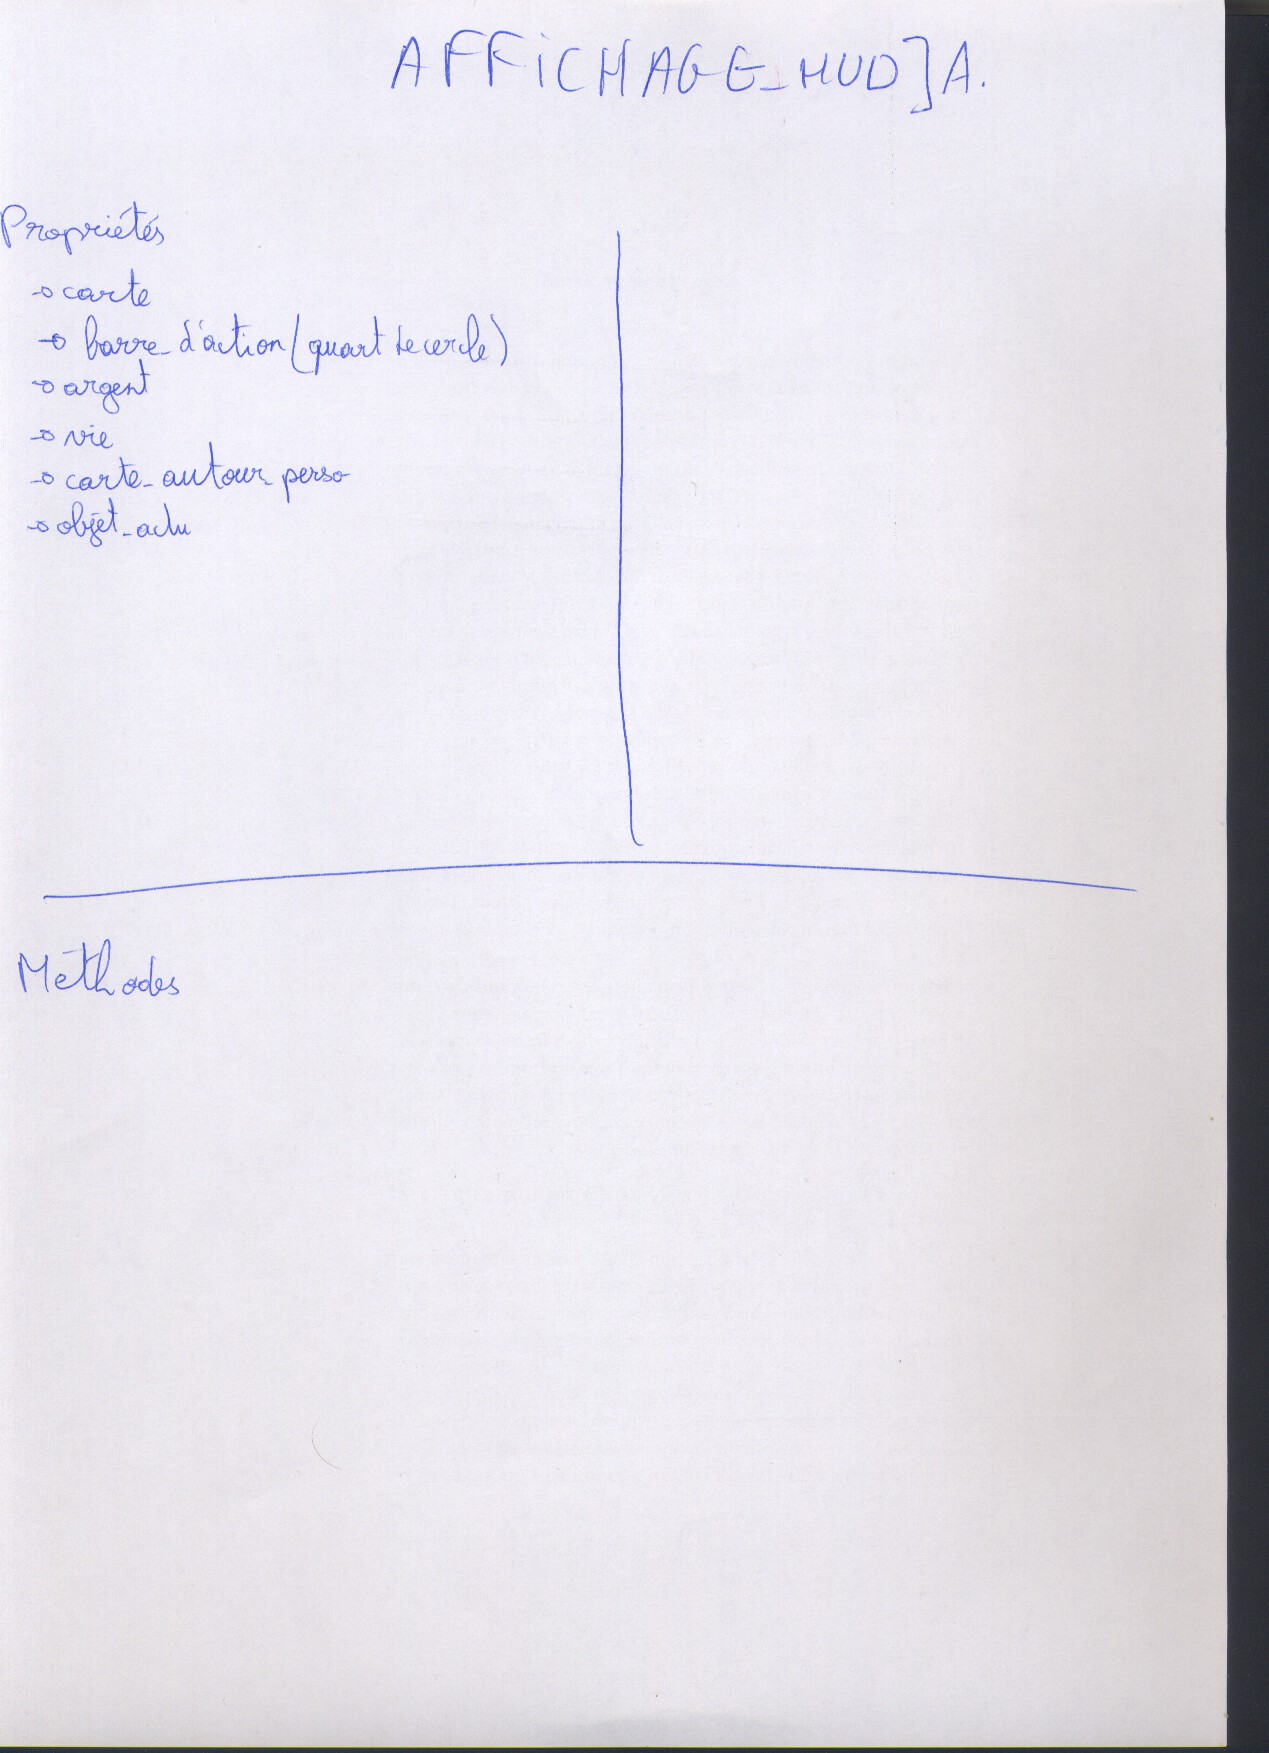 AFFICHAGE_HUD]A.
Propriétés
→ carte
→ barre_d'action (quart de cercle)
→ argent
→ vie
→ carte_autour_perso
→ objet_actu
Méthodes